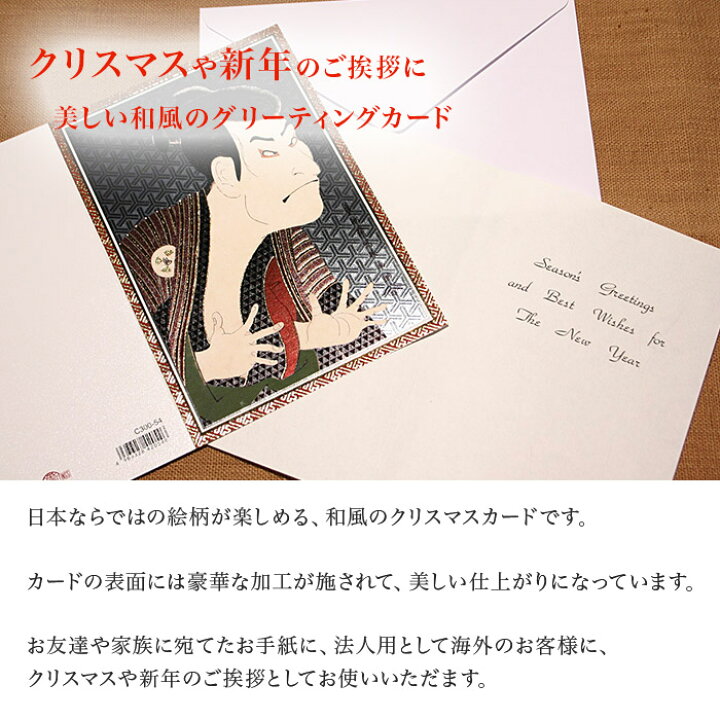 クリスマスや新年のご挨拶に
美しい和風のグリーティングカード
Season's Greetings
and Best Wishes for
The New Year
C300-54
日本ならではの絵柄が楽しめる、和風のクリスマスカードです。
カードの表面には豪華な加工が施されて、美しい仕上がりになっています。
お友達や家族に宛てたお手紙に、法人用として海外のお客様に、
クリスマスや新年のご挨拶としてお使いいただます。